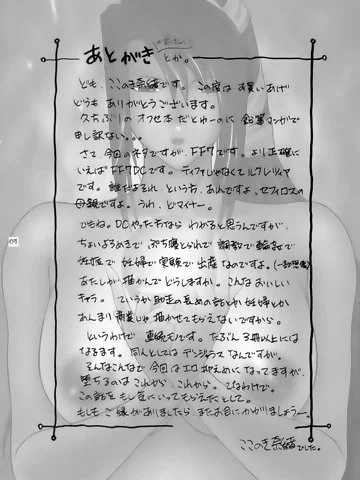 あとがき
とか。
ども、ここのき奈緒です。この度はお買いあげ
どうもありがとうございます。
久しぶりのオフセ本だとゆーのに鉛筆マンガで
申し訳ない、、、
さて、今回のネタですが、FF7です。より正確に
いえばFF7DCです。ティファじゃなくてルクレツィア
です。誰だよそれ、という方、あれですよ、セフィロスの
母親ですよ。うわ、どマイナー。
でもね。DCやった方なら わかると思うんですが、
ちょいよろめきで、ぷち寝とられで、調教で輪姦で
妊娠で妊婦で実験で出産なのですよ。(一部想像)
あたしが描かんでどうしますか。こんなおいしい
キャラ。ていうか助走の長めの話とか妊婦とか
あんまり商業じゃ描かせてもらえないですから。
というわけで 連続モノです。たぶん3冊以上には
なるます。同人としては デンジャラスなんですが。
そんなこんなで今回はエロ控えめになってますが、
堕ちるのはこれから、これから。てなわけで。
この話をもし気にいってもらえたとして、
もしもご縁がありましたら、またお目にかかりましょうー。
ここのき奈緒でした。